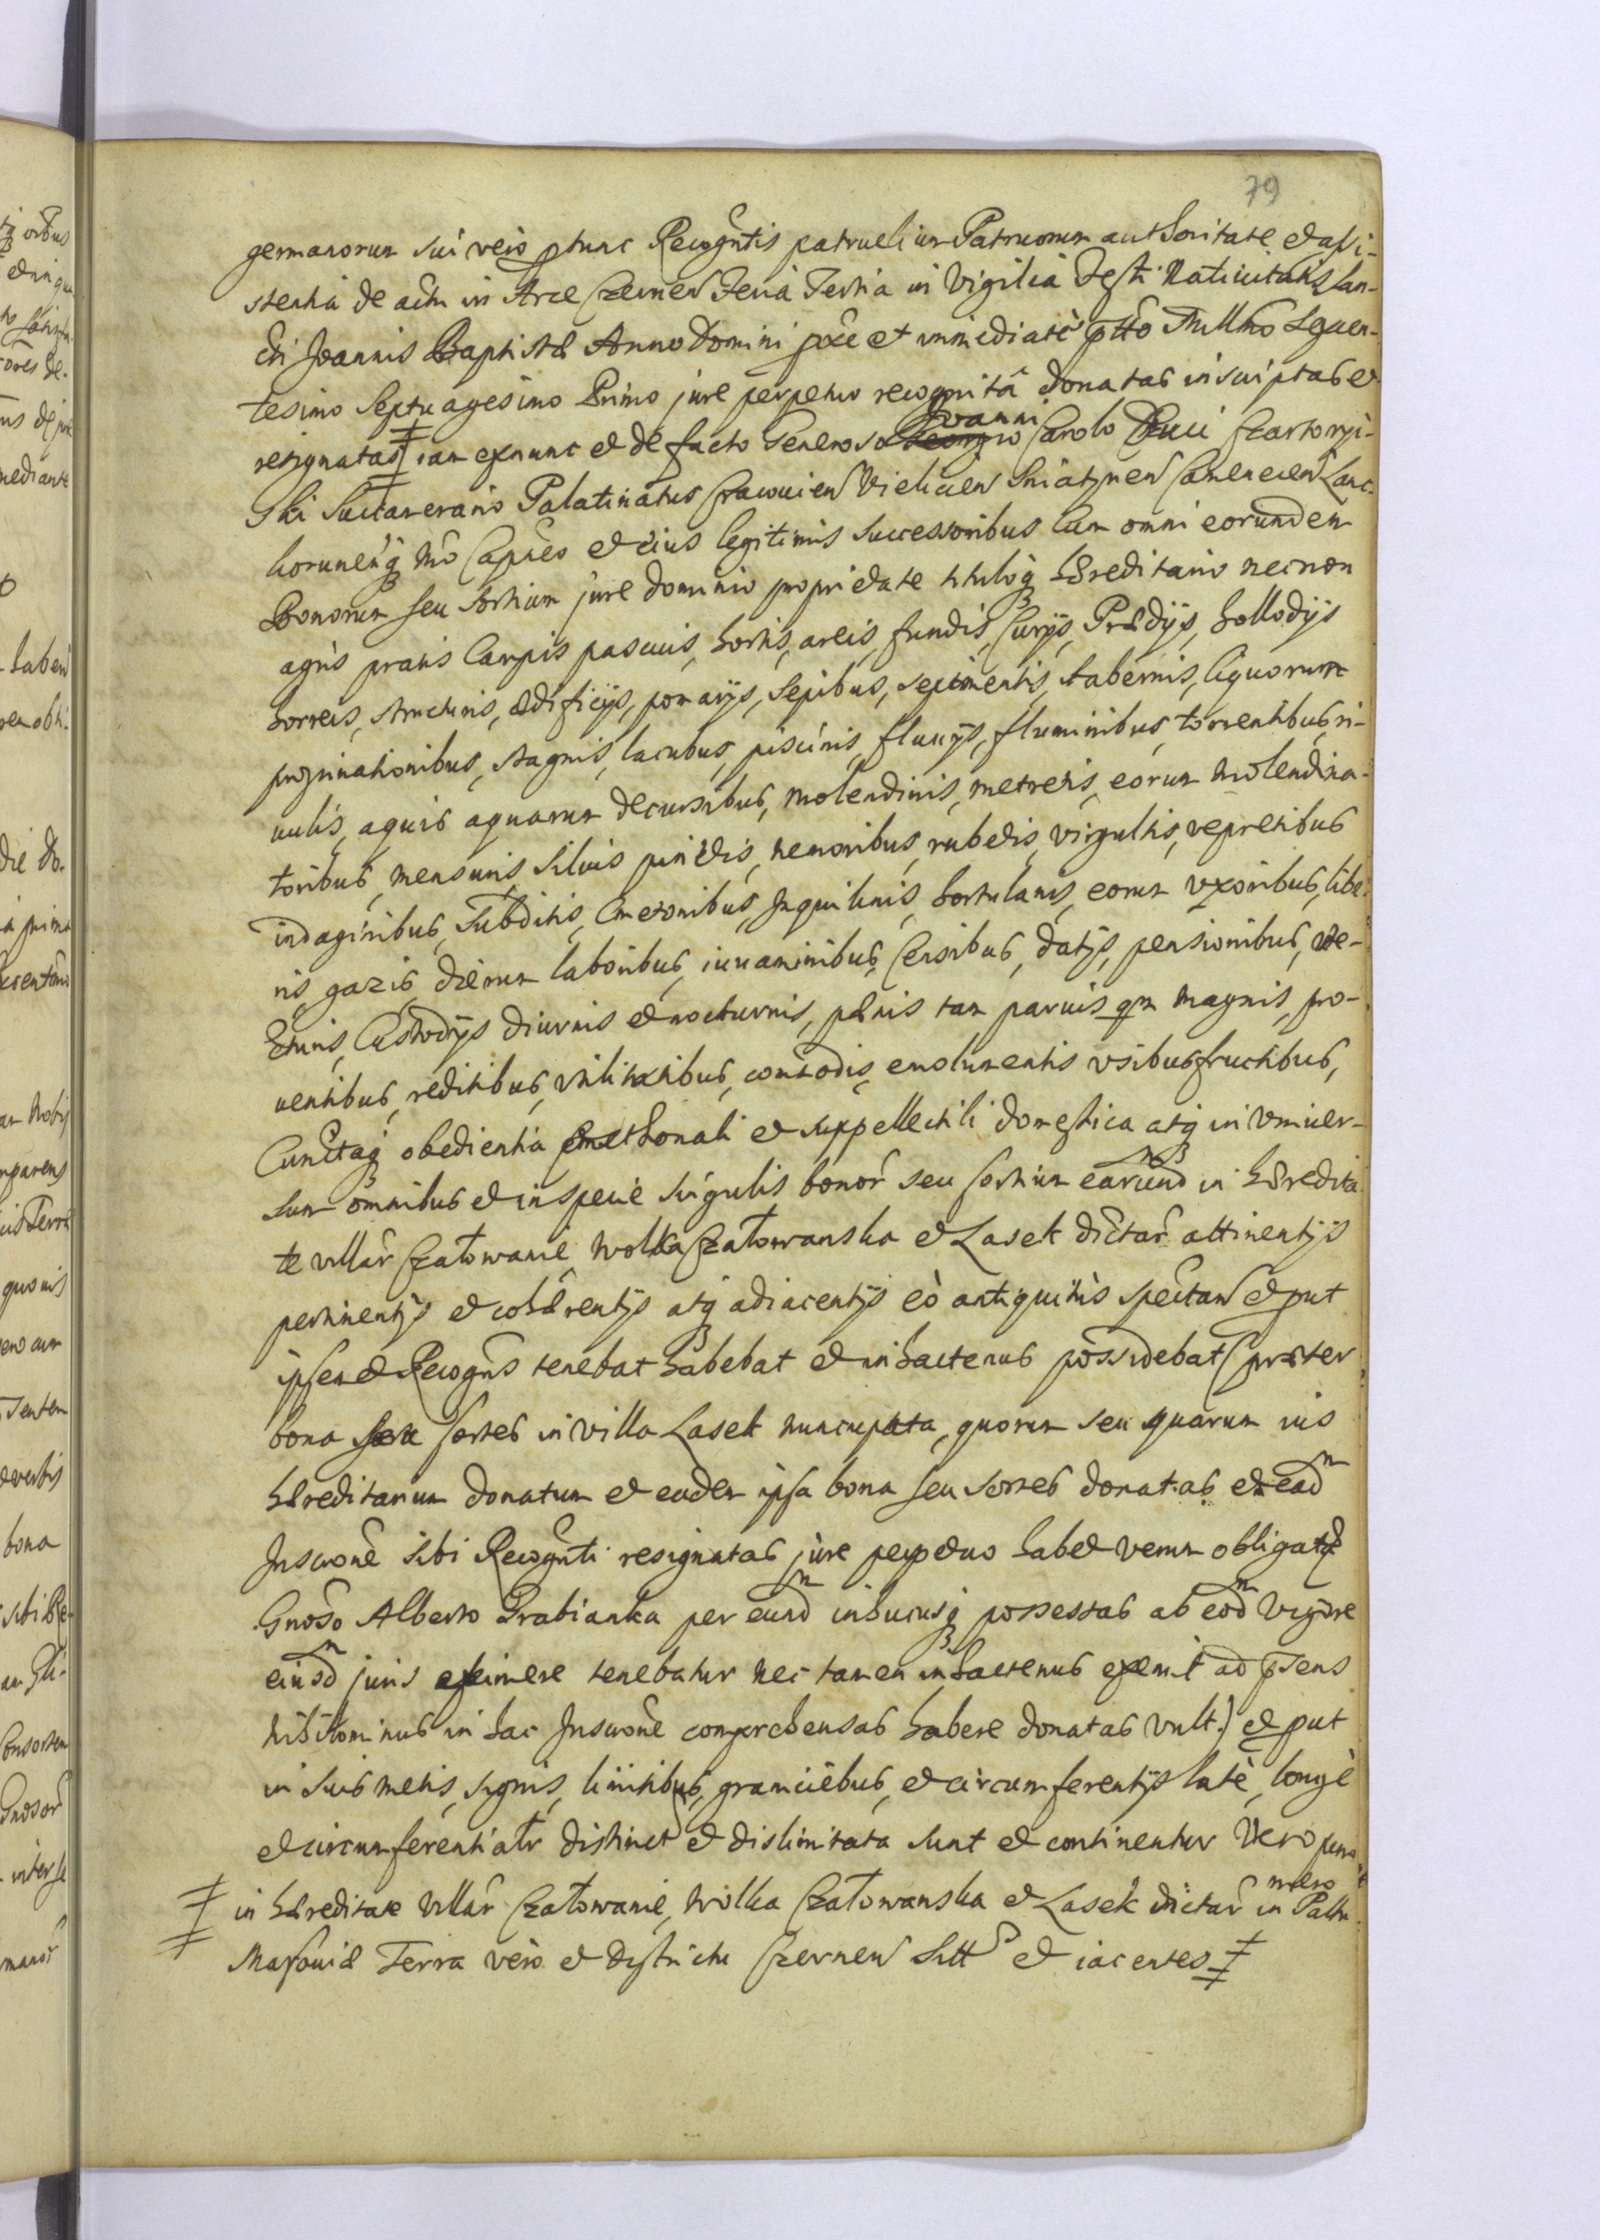 79
germanorum sui vero ptunc Recogntis patruelium Patruorum authoritate et assi-
stentia de actu in Arce Czernen Feria Tertia in Vigilia Festi Natiuitatis San-
cti Joannis Baptistæ Anno Domini pxe et immediatè ptto Millmo Sexcen-
tesimo Septuagesimo Primo jure perpetuo recognita donatas inscriptas et
resignatas iam exnunc et de facto Generoso Joanni Carolo Duci Czartoryi-
ski Succamerario Palatinatus Cracouien Vielicien Sniatynen Camenecen Lanc-
korunenq mo Capneo et eius legitimis Successoribus Cum omni eorundem
Bonorum seu sortium jure dominio proprietate tituloq hæreditario necnon
agris pratis Campis pascuis, hortis, areis, fundis, Curijs, Prædijs, hollodijs
horreis, structuris, ædificijs, pomarijs, sepibus, sepimentis, tabernis, liquorum
propinationibus, stagnis, lacubus, piscinis, fluuijs, fluminibus, torrentibus, ri-
uulis, aquis aquarum decursibus, molendinis, metretis, eorum molendina-
toribus, mensuris siluis pinetis, nemoribus, rubetis, virgultis, vepretibus
indaginibus, Subditis, Cmetonibus, Inquilinis, hortulanis, eorum vxoribus, libe-
ris, gazis, dierum laboribus, iuuaminibus, Censibus, datijs, pensionibus, ve-
cturis, Custodijs diurnis et nocturnis, pænis tam paruis qm magnis, pro-
uentibus, reditibus, vtilitatibus, comodis, emolumentis vsibusfructibus,
Cunctaq obedientia Cmethonali et suppellectili domestica atq in vniuer-
sum omnibus et in specie singulis bonor seu sortium earund in hæredita
te villar Czatowanie, Wolka Czatowanska et Lasek dictar attinentijs
pertinentijs et cohærentijs atq adiacentijs eò antiquitùs spectan et put
ipsemet Recogns tenebat habebat et inhactenus possidebat (præter
bona seu sortes in villa Lasek nuncupata, quorum seu quarum ius
hæreditarium donatum et eadem ipsa bona seu sortes donatas et ead
Inscrone sibi Recognti resignatas jure perpetuo habet verum obligatæ
Gnoso Alberto Grabianka per eund inhucusq possessas ab eod vigore
eiusd juris eximere tenebatur nec tamen inhactenus exemit ad psens
nihilominus in hac Inscrone comprehensas habere donatas vult) et put
in suis metis, signis, limitibus, graniciebus, et circumferentijs latè, longè
et circumferentialr distinct et dislimitata sunt et continentur Vero
in hæreditate villar Czatowanie, Wolka Czatowanska et Lasek dictar in Pallu
Masouiæ Terra vero et districtu Czernen sitt et iacentes